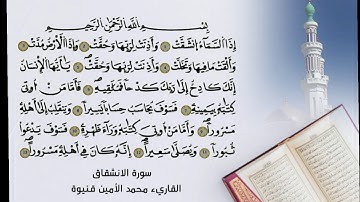 بِسْمِ اللَّهِ الرَّحْمَٰنِ الرَّحِيمِ
إِذَا السَّمَاءُ انشَقَّتْ ١ وَأَذِنَتْ لِرَبِّهَا وَحُقَّتْ ٢ وَإِذَا الْأَرْضُ مُدَّتْ ٣
وَأَلْقَتْ مَا فِيهَا وَتَخَلَّتْ ٤ وَأَذِنَتْ لِرَبِّهَا وَحُقَّتْ ٥ يَا أَيُّهَا الْإِنسَانُ
إِنَّكَ كَادِحٌ إِلَىٰ رَبِّكَ كَدْحًا فَمُلَاقِيهِ ٦ فَأَمَّا مَنْ أُوتِيَ
كِتَابَهُ بِيَمِينِهِ ٧ فَسَوْفَ يُحَاسَبُ حِسَابًا يَسِيرًا ٨ وَيَنقَلِبُ إِلَىٰ أَهْلِهِ
مَسْرُورًا ٩ وَأَمَّا مَنْ أُوتِيَ كِتَابَهُ وَرَاءَ ظَهْرِهِ ١٠ فَسَوْفَ يَدْعُو
ثُبُورًا ١١ وَيَصْلَىٰ سَعِيرًا ١٢ إِنَّهُ كَانَ فِي أَهْلِهِ مَسْرُورًا ١٣
سورة الانشقاق
القاريء محمد الأمين قنيوة